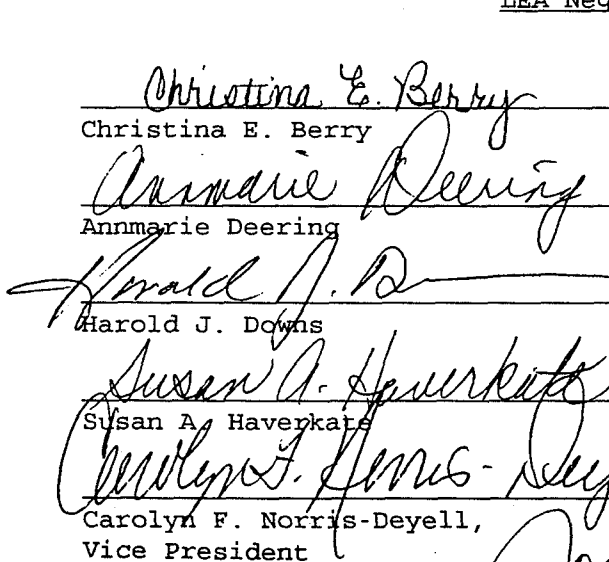 LEA Neg
Christina E. Berry
Christina E. Berry
Annmarie Deering
Annmarie Deering
Harold J. D
Harold J. Downs
Susan A. Haverkate
Susan A. Haverkate
Carolyn F. Norris-Dey
Carolyn F. Norris-Deyell,
Vice President